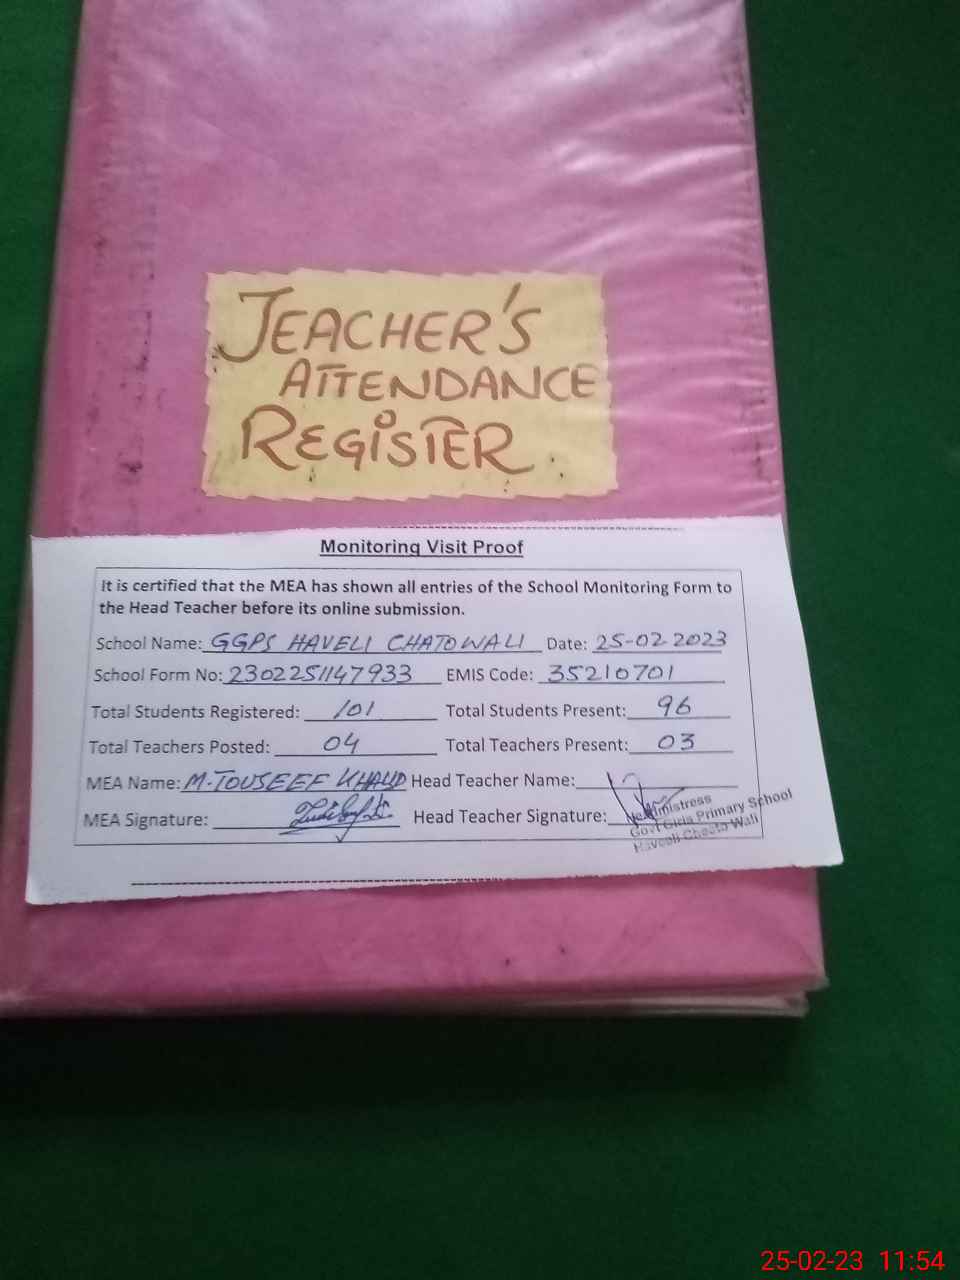 TEACHER'S
ATTENDANCE
REGISTER
Monitoring Visit Proof
It is certified that the MEA has shown all entries of the School Monitoring Form to
the Head Teacher before its online submission.
School Name: GGPS HAVELI CHATOWALI Date: 25-02-2023
School Form No: 2302251147933 EMIS Code: 35210701
Total Students Registered: 101 Total Students Present: 96
Total Teachers Posted: 04 Total Teachers Present: 03
MEA Name: M.TOUSEEF KHALID Head Teacher Name:
MEA Signature: Head Teacher Signature:
Govt Girls Primary School
Haveeli Chaato Wali
25-02-23 11:54